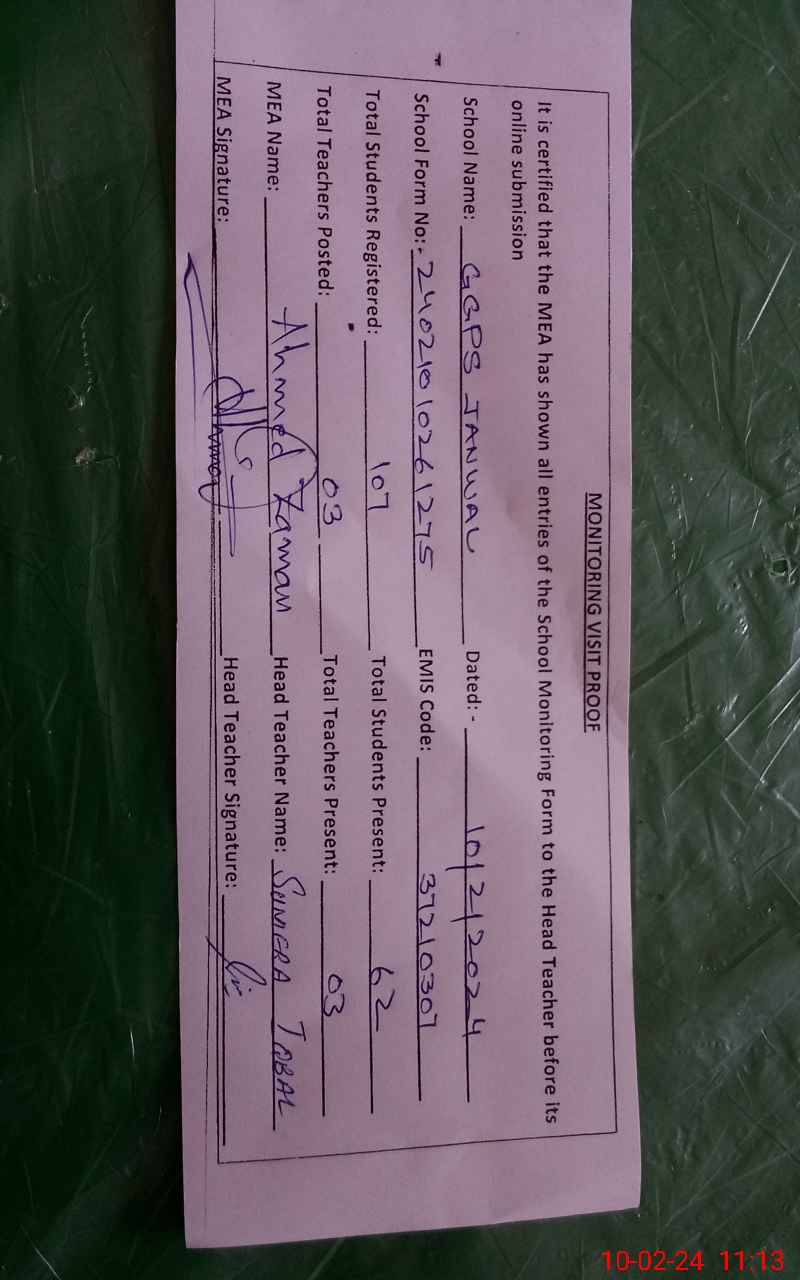 MONITORING VISIT PROOF
It is certified that the MEA has shown all entries of the School Monitoring Form to the Head Teacher before its
online submission
School Name: GGPS JANWAL Dated: - 10/2/2024
School Form No:- 2402101026127​5 EMIS Code: 37210307
Total Students Registered: 107 Total Students Present: 62
Total Teachers Posted: 03 Total Teachers Present: 03
MEA Name: Ahmed Zaman Head Teacher Name: SUMERA IQBAL
MEA Signature: Head Teacher Signature:
10-02-24 11:13